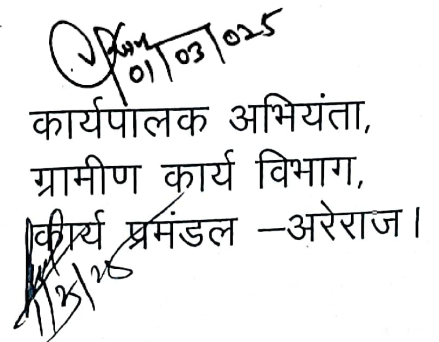 01/03/025
कार्यपालक अभियंता,
ग्रामीण कार्य विभाग,
कार्य प्रमंडल –अरेराज।